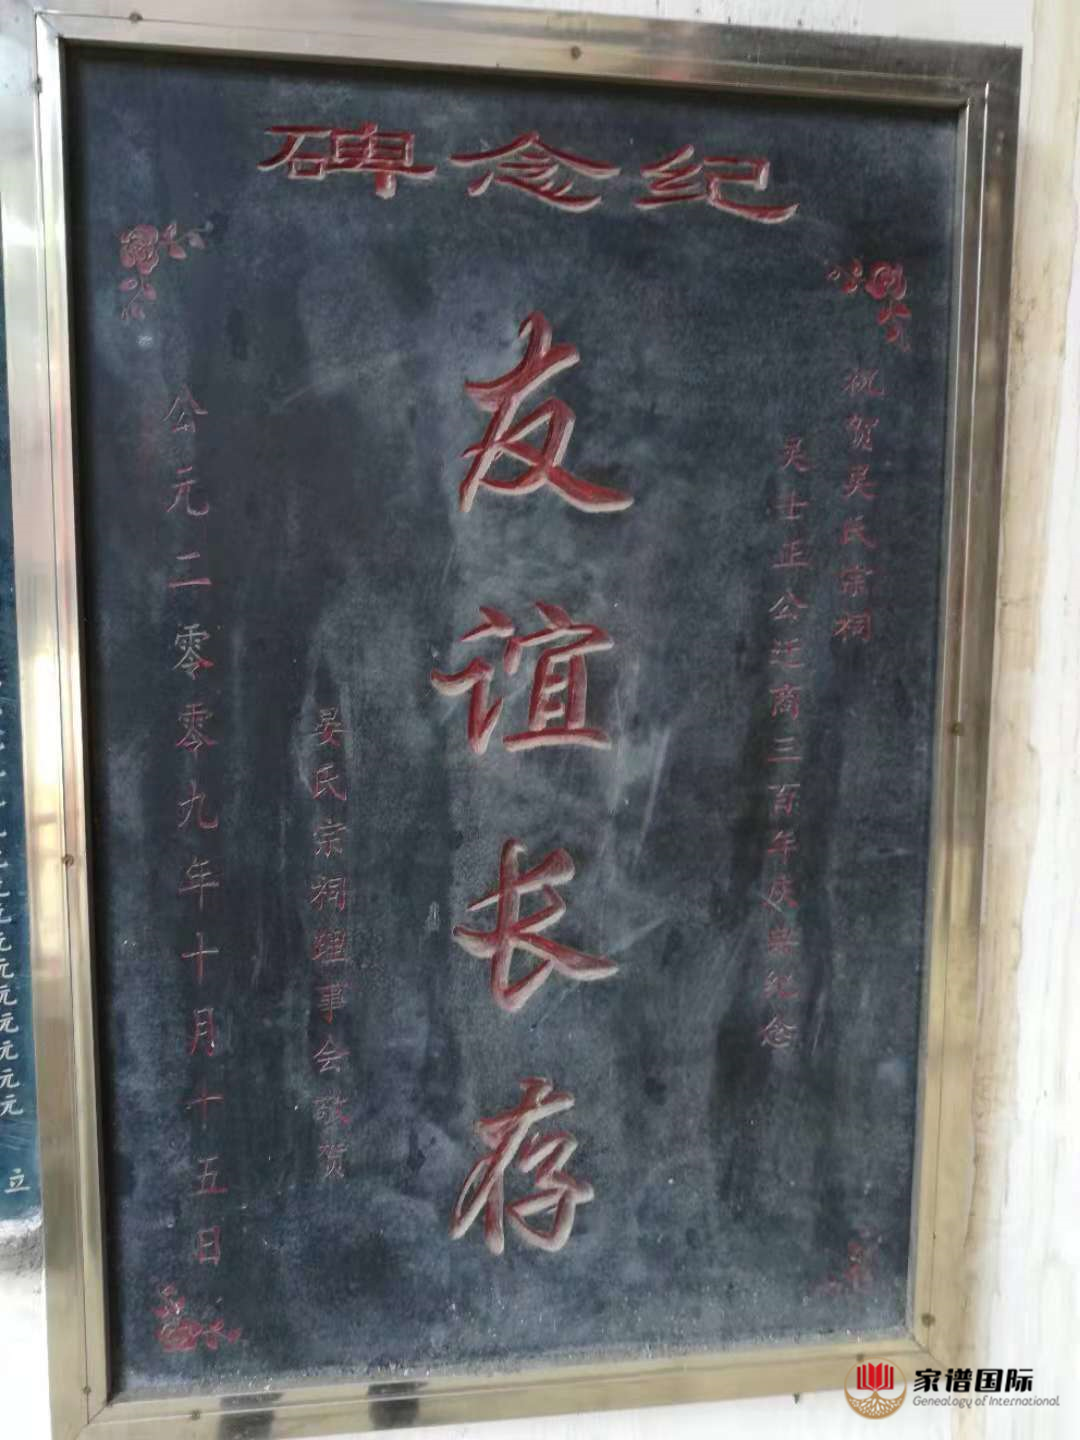 纪念碑
祝贺吴氏宗祠
吴士正公迁商三百年庆典纪念
友谊长存
晏氏宗祠理事会敬贺
公元二零零九年十月十五日
元
元
元
元
元
元
立
家谱国际
Genealogy of International